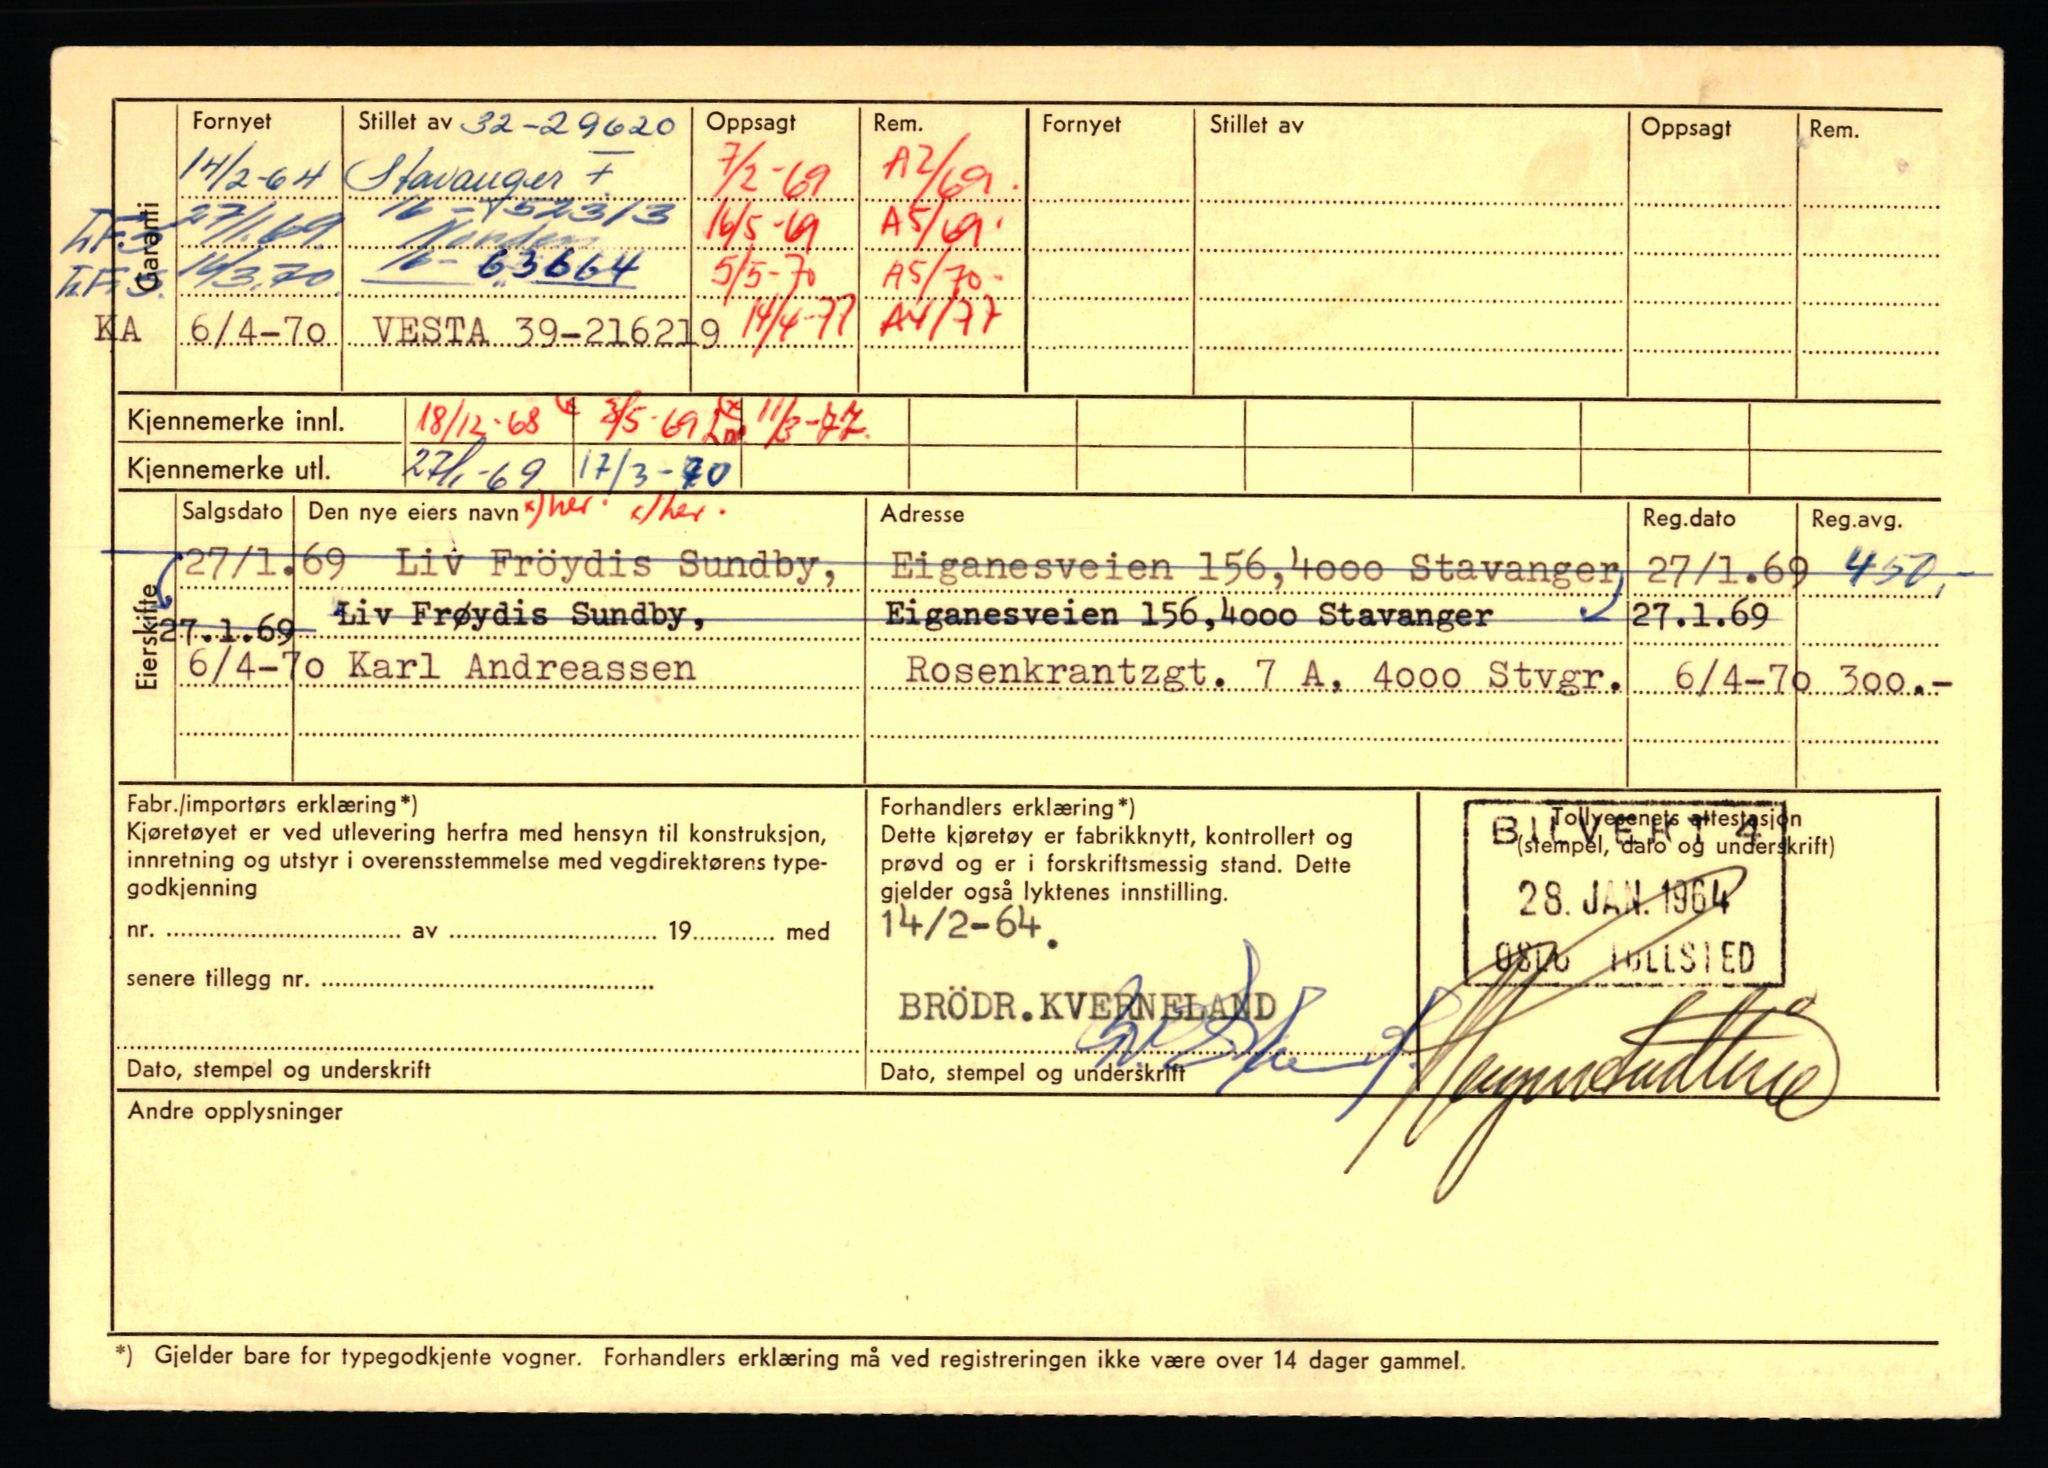 Fornyet Stillet av 32-29620 Oppsagt Rem. Fornyet Stillet av Oppsagt Rem.
14/2-64 Stavanger 7/2-69 A2/69.
Garanti
27/1.69. 16-752313 16/5-69 A5/69.
16/3.70. 16-63664 5/5-70 A5/70-
KA 6/4-70 VESTA 39-216219 14/4-77 A4/77
Kjennemerke innl. 18/12-68 5/5-69 11/3-77.
Kjennemerke utl. 27/1-69 17/3-70
Salgsdato Den nye eiers navn x) her. x) her. Adresse Reg.dato Reg.avg.
Eierskifte
27/1.69 Liv Fröydis Sundby, Eiganesveien 156,4000 Stavanger 27/1.69 450,-
27.1.69 Liv Frøydis Sundby, Eiganesveien 156,4000 Stavanger 27.1.69
6/4-70 Karl Andreassen Rosenkrantzgt. 7 A, 4000 Stvgr. 6/4-70 300.-
Fabr./importørs erklæring*)
Kjøretøyet er ved utlevering herfra med hensyn til konstruksjon,
innretning og utstyr i overensstemmelse med vegdirektørens type-
godkjenning
nr. av 19 med
senere tillegg nr.
Dato, stempel og underskrift
Forhandlers erklæring*)
Dette kjøretøy er fabrikknytt, kontrollert og
prøvd og er i forskriftsmessig stand. Dette
gjelder også lyktenes innstilling.
14/2-64.
BRÖDR.KVERNELAND
Dato, stempel og underskrift
Tollvesenets attestasjon
(stempel, dato og underskrift)
28. JAN. 1964
OSLO TOLLSTED
Andre opplysninger
*) Gjelder bare for typegodkjente vogner. Forhandlers erklæring må ved registreringen ikke være over 14 dager gammel.